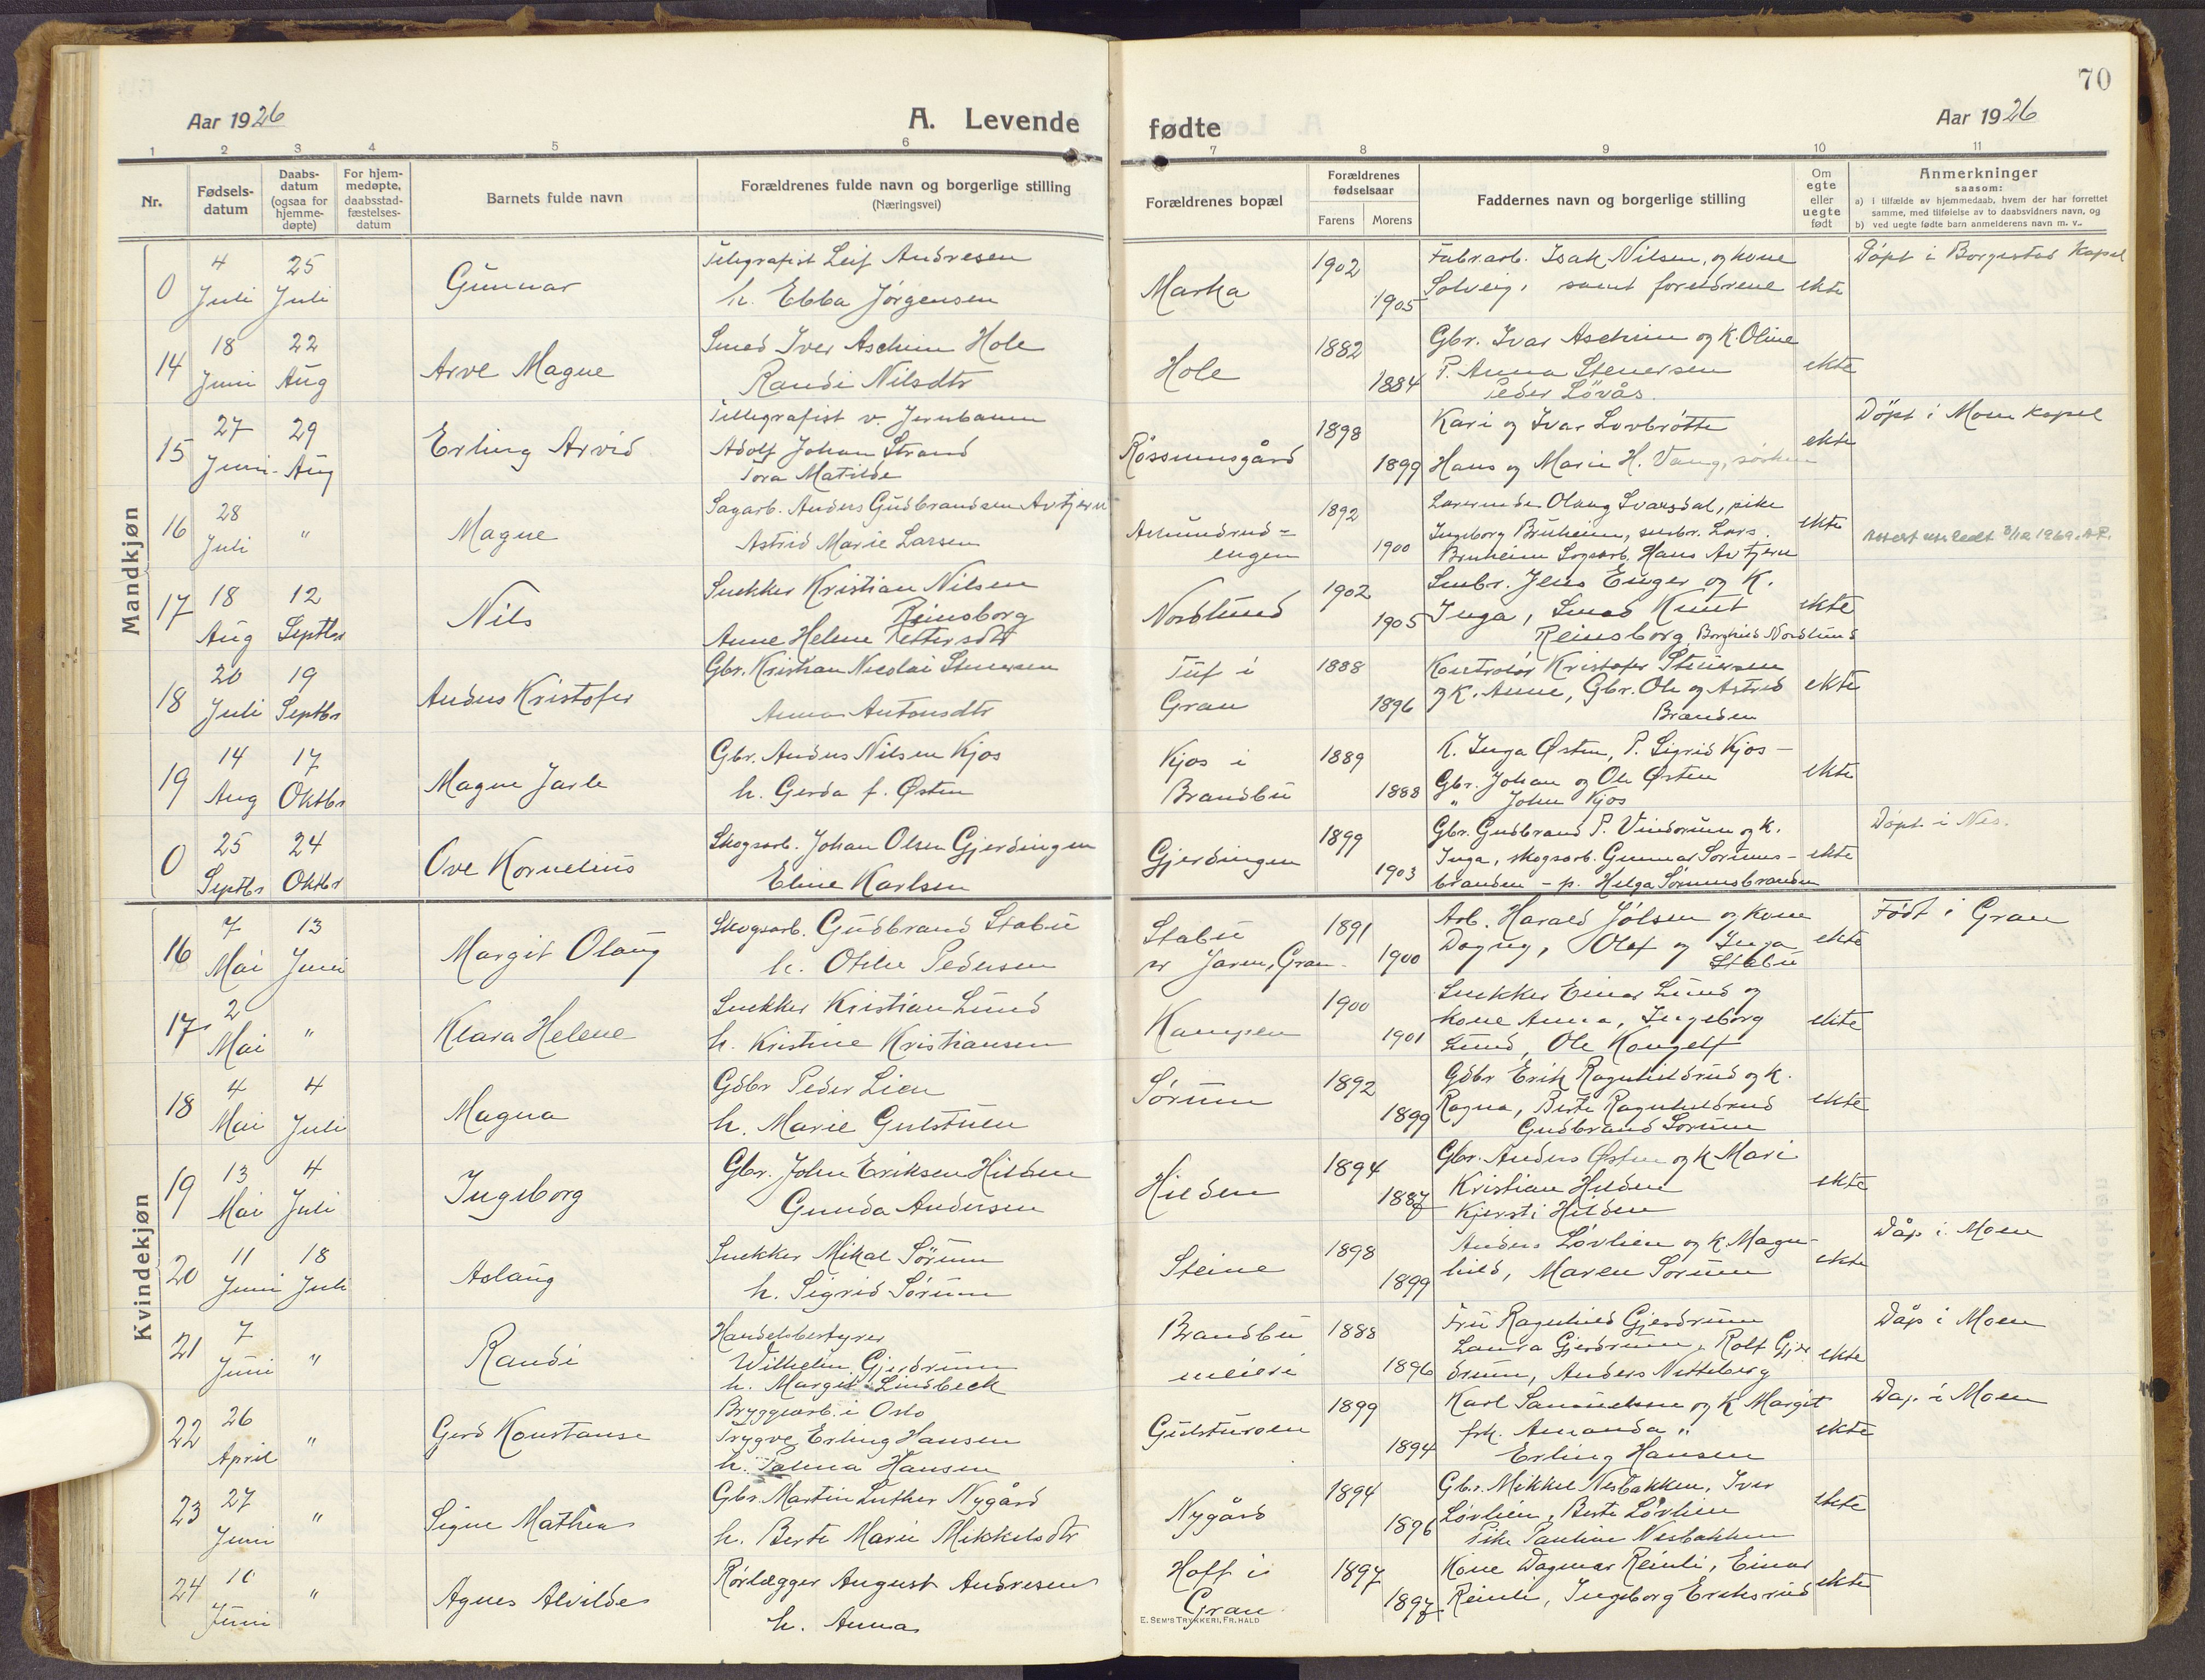 70
Aar 1926
A. Levende
fødte
Aar 1926
1 2 3 4 5 6 7 8 9 10 11
Nr.
Fødsels-
datum
Daabs-
datum
(ogsaa for
hjemme-
døpte)
For hjem-
medøpte,
daabsstad-
fæstelses-
datum
Barnets fulde navn
Forældrenes fulde navn og borgerlige stilling
(Næringsvei)
Forældrenes bopæl
Forældrenes
fødselsaar
Farens Morens
Faddernes navn og borgerlige stilling
Om
egte
eller
uegte
født
Anmerkninger
saasom:
a) i tilfælde av hjemmedaab, hvem der har forrettet
samme, med tilføielse av to daabsvidners navn, og
b) ved uegte fødte barn anmelderens navn m. v..
Mandkjøn
0 4 Juli 25 Juli Gunnar
Telegrafist Leif Andresen
h. Ebba Jørgensen
Marka 1902 1905
Fabr.arb. Isak Nilsen, og kone
Solveig, samt foreldrene ekte
Døpt i Borgestad Kapel
14 18 Juni 22 Aug Arve Magne
Smed Iver Aschim Hole
Randi Nilsdtr
Hole 1882 1884
Gbr. Ivar Aschim og K. Oline
P. Anna Stenersen
Peder Løvås. ekte
15 27 Juni 29 Aug Erling Arvid
Tellegrafist v. Jernbanen
Adolf Johan Strand
Tora Matilde
Røssumsgård 1898 1899
Kari og Ivar Lovbrøtte
Hans og Marie H. Vang, ekte
Døpt i Moen kapel
16 28 Juli " Magne
Sagarb. Anders Gudbrandsen Avtjern
Astrid Marie Larsen
Asmundrud-
engen 1892 1900
Olaug Svarsdal, pike
Ingeborg Bruheim, smbr. Lars
Bruheim Sagarb. Hans Avtjern ekte
17 18 Aug 12 Septbr Nils
Snekker Kristian Nilsen
Reinsborg
Anne Helene Pettersdtr
Nordlund 1902 1905
Smbr. Jens Enger og K.
Inga, Smed Knut
Reinsborg, Borghild Nordlund ekte
18 20 Juli 19 Septbr Anders Kristofer
Gbr. Kristian Nicolai Stenersen
Anna Antonsdtr
Tuf i
Gran 1888 1896
Kontrolør Kristofer Stenersen
og K. Anne, Gbr. Ole og Astrid
Branden ekte
19 14 Aug 17 Oktbr Magne Jarle
Gbr. Anders Nilsen Kjos
h. Gerda f. Østen
Kjos i
Brandbu 1889 1888
K. Inga Østen, P. Sigrid Kjos -
Gbr. Johan og Ole Østen
" John Kjos ekte
0 25 Septbr 24 Oktbr Ove Kornelius
Skogsarb. Johan Olsen Gjerdingen
Eline Karlsen
Gjerdingen 1899 1903
Gbr. Gudbrand P. Vindorum og K.
Inga, skogsarb. Gunnar Sørums-
branden - p. Helga Sørumsbranden ekte
Døpt i Nes.
Kvindekjøn
16 7 Mai 13 Juni Margit Olaug
Skogsarb. Gudbrand Stabu
h. Otilie Pedersen
Stabu
nr Jaren, Gran 1891 1900
Arb. Harald Jølsen og kone
Dagny, Olaf og Inga
Stabu ekte
Født i Gran
17 2 Mai " Klara Helene
Snekker Kristian Lund
h. Kristine Kristiansen
Kampen 1900 1901
Snekker Einar Lund og
kone Anna, Ingeborg
Lund, Ole Kongelf ekte
18 4 Mai 4 Juli Magna
Gdbr Peder Lien
h. Marie Gulstuen
Sørum 1892 1899
Gdbr Erik Ragnhildrud og K.
Ragna, Berte Ragnhildrud
Gudbrand Sørum ekte
19 13 Mai 4 Juli Ingeborg
Gbr. John Eriksen Hilden
Gunda Andersen
Hilden 1894 1887
Gbr. Anders Østen og K Mari
Kristian Hilden
Kjersti Hilden ekte
20 11 Juni 18 Juli Aslaug
Snekker Mikal Sørum
h. Sigrid Sørum
Steine 1898 1899
Anders Løvlien og K Magn-
hild, Maren Sørum ekte
Dåp i Moen
21 7 Juni " Randi
Handelsbestyrer
Wilhelm Gjerdrum
h. Margit Lindbeck
Brandbu
meieri 1888 1896
Fru Ragnhild Gjerdrum
Laura Gjerdrum, Rolf Gjer
drum, Anders Netteberg ekte
Dåp i Moen
22 26 April " Gerd Konstanse
Bryggearb. i Oslo
Trygve Erling Hansen
h. Palma Hansen
Gulsturoen 1899 1894
Karl Samuelsen og K Margit
frk. Amanda "
Erling Hansen ekte
Dap i Moen
23 27 Juni " Signe Mathea
Gbr. Martin Luther Nygård
h. Berte Marie Mikkelsdtr
Nygård 1894 1896
Gbr. Mikkel Nesbakken, Iver
Løvlien, Berte Løvlien
Pike Pauline Nesbakken ekte
24 10 Juni " Agnes Alvilde
Rørlægger August Andresen
h. Anna
Hoff i
Gran 1897 1897
Kone Dagmar Reinli, Einar
Reinli, Ingeborg Eriksrud ekte
E. SEM'S TRYKKERI, FR.HALD